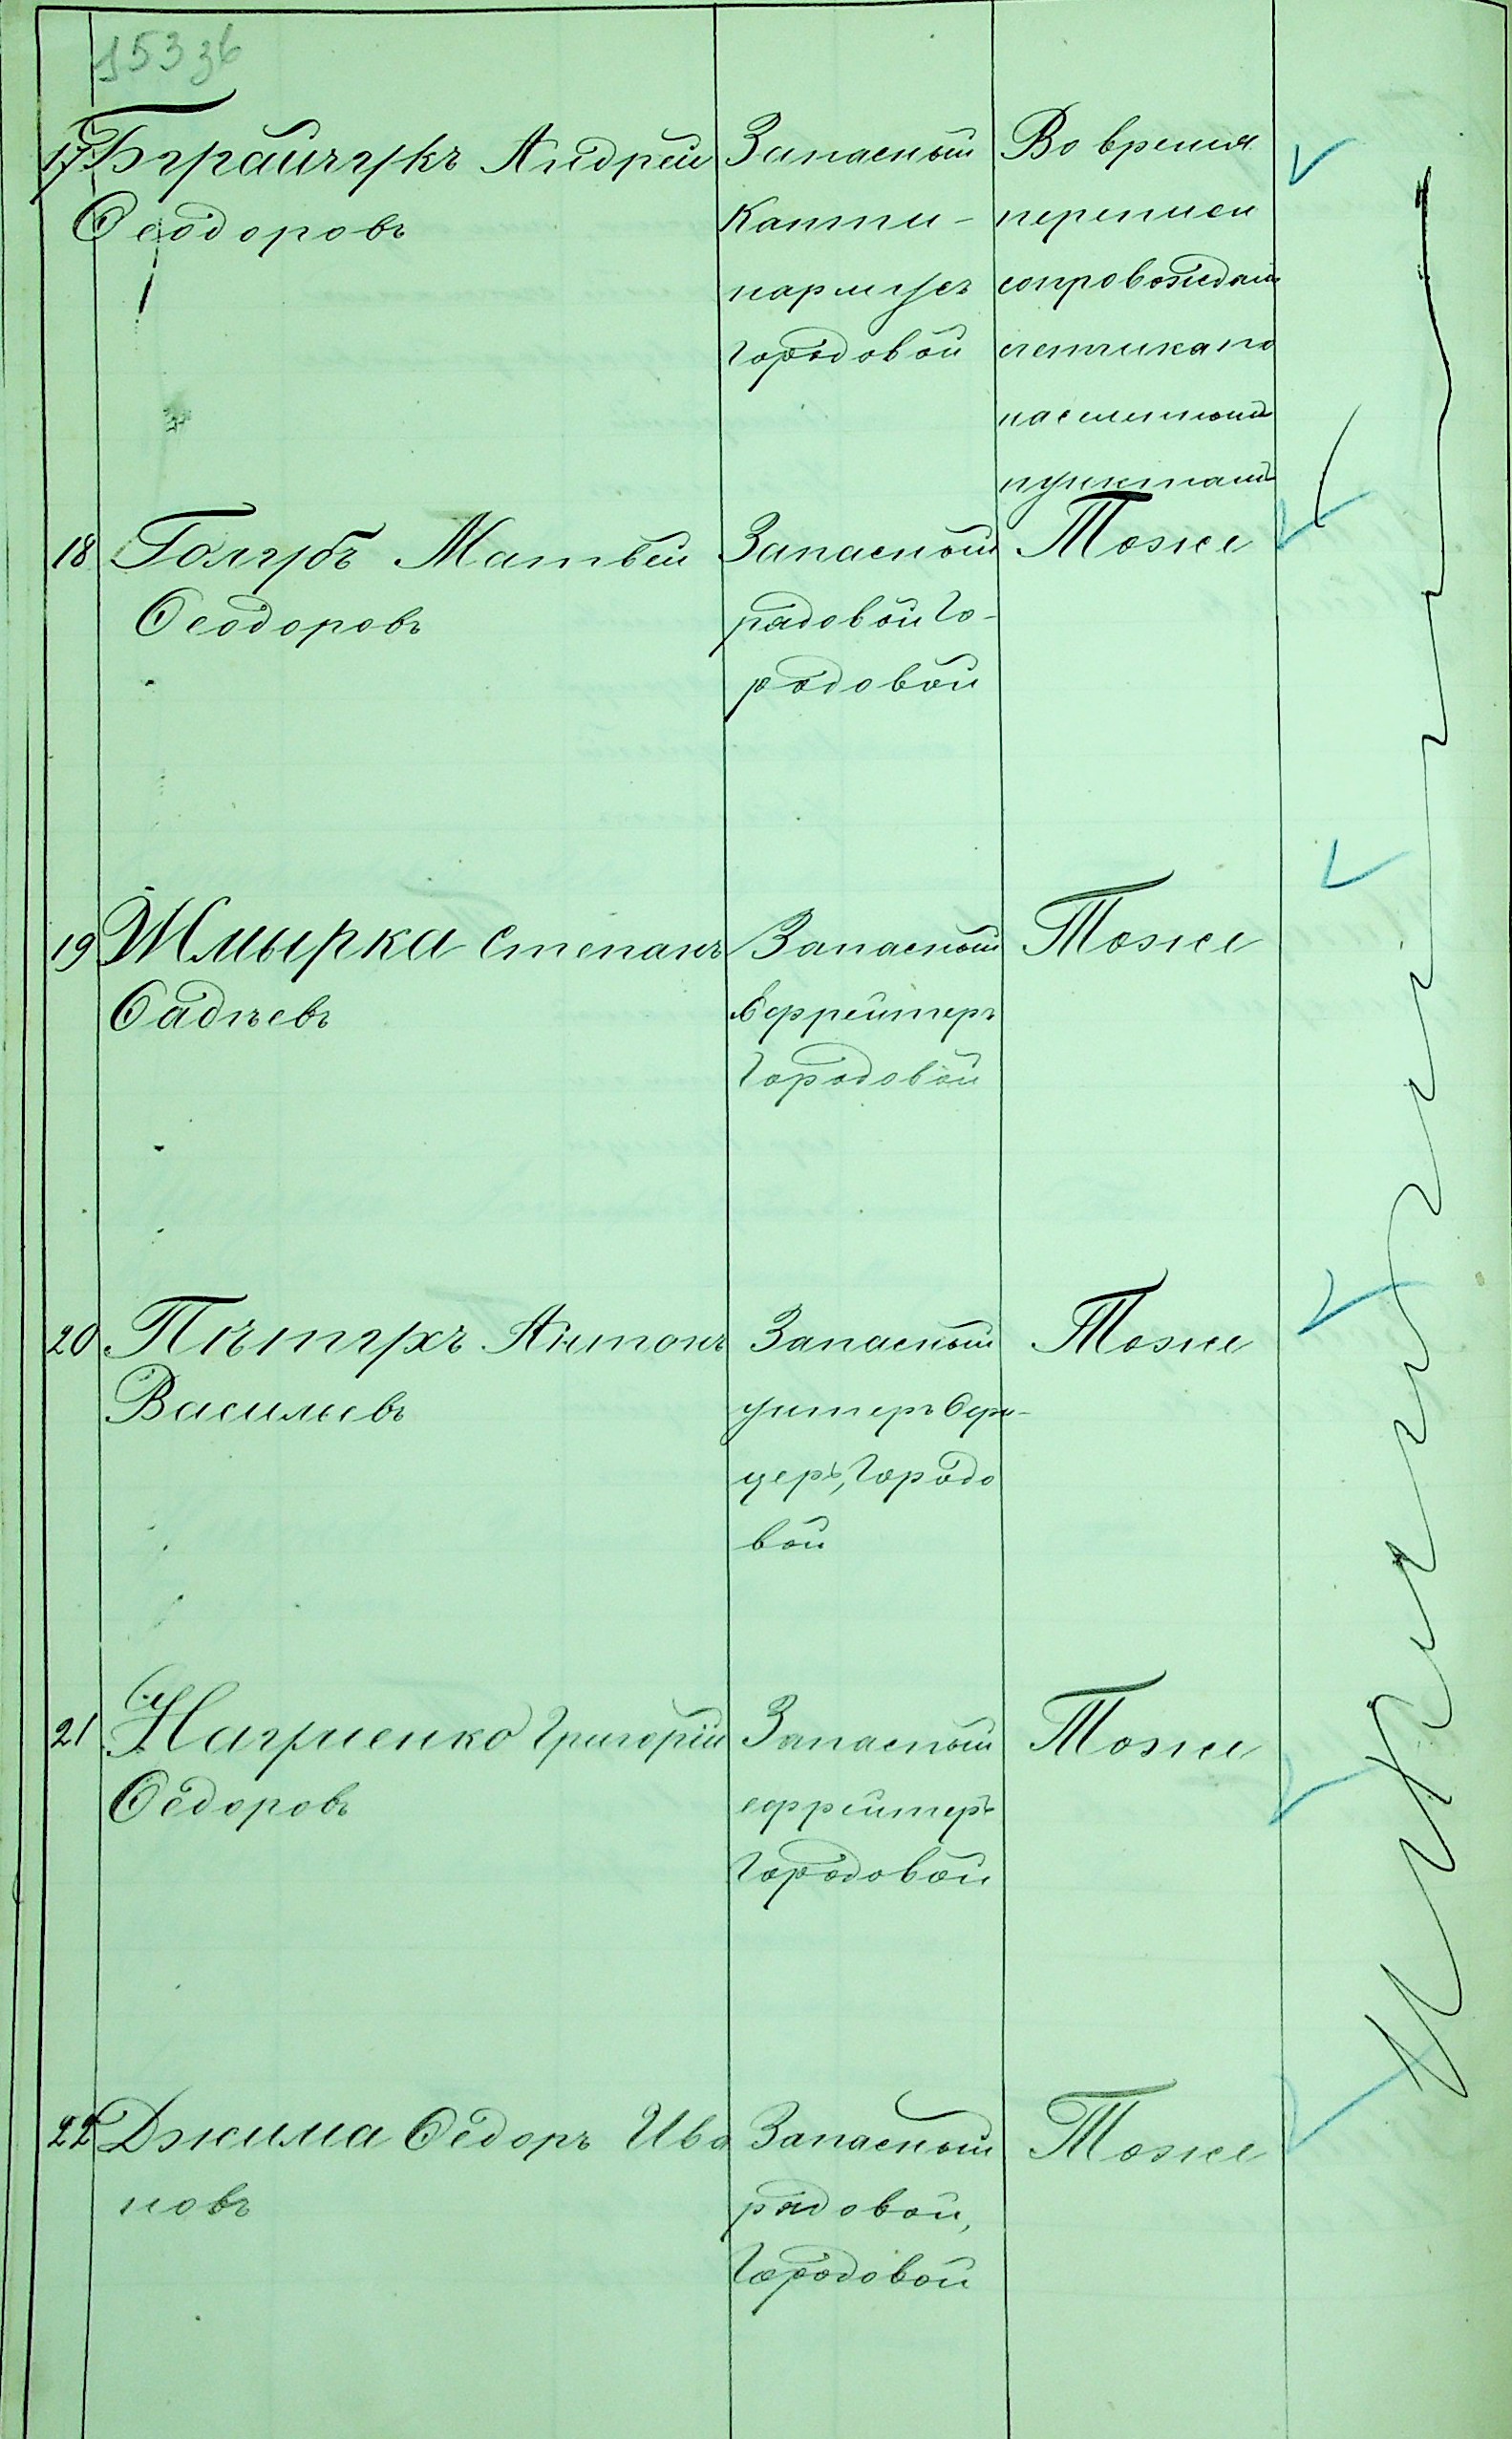 15336
17 Бурайчукъ Андрей
Ѳеодоровъ
Запасный
Каптенармусъ
городовой
Во время
переписи
сопровождалъ
счетчика по
населеннымъ
пунктамъ
18 Голубъ Матвей
Ѳеодоровъ
Запасный
рядовой Го-
родовой
Тоже
19 Жмырка Степанъ
Садѣевъ
Запасный
Ефрейтеръ
Городовой
Тоже
20 Пѣтухъ Антонъ
Васильевъ
Запасный
унтеръ Офи-
церъ, Городо
вой
Тоже
21 Науменко Григорій
Ѳедоровъ
Запасный
ефрейтеръ
Городовой
Тоже
22 Джима Ѳедоръ Ива
новъ
Запасный
рядовой,
Городовой
Тоже